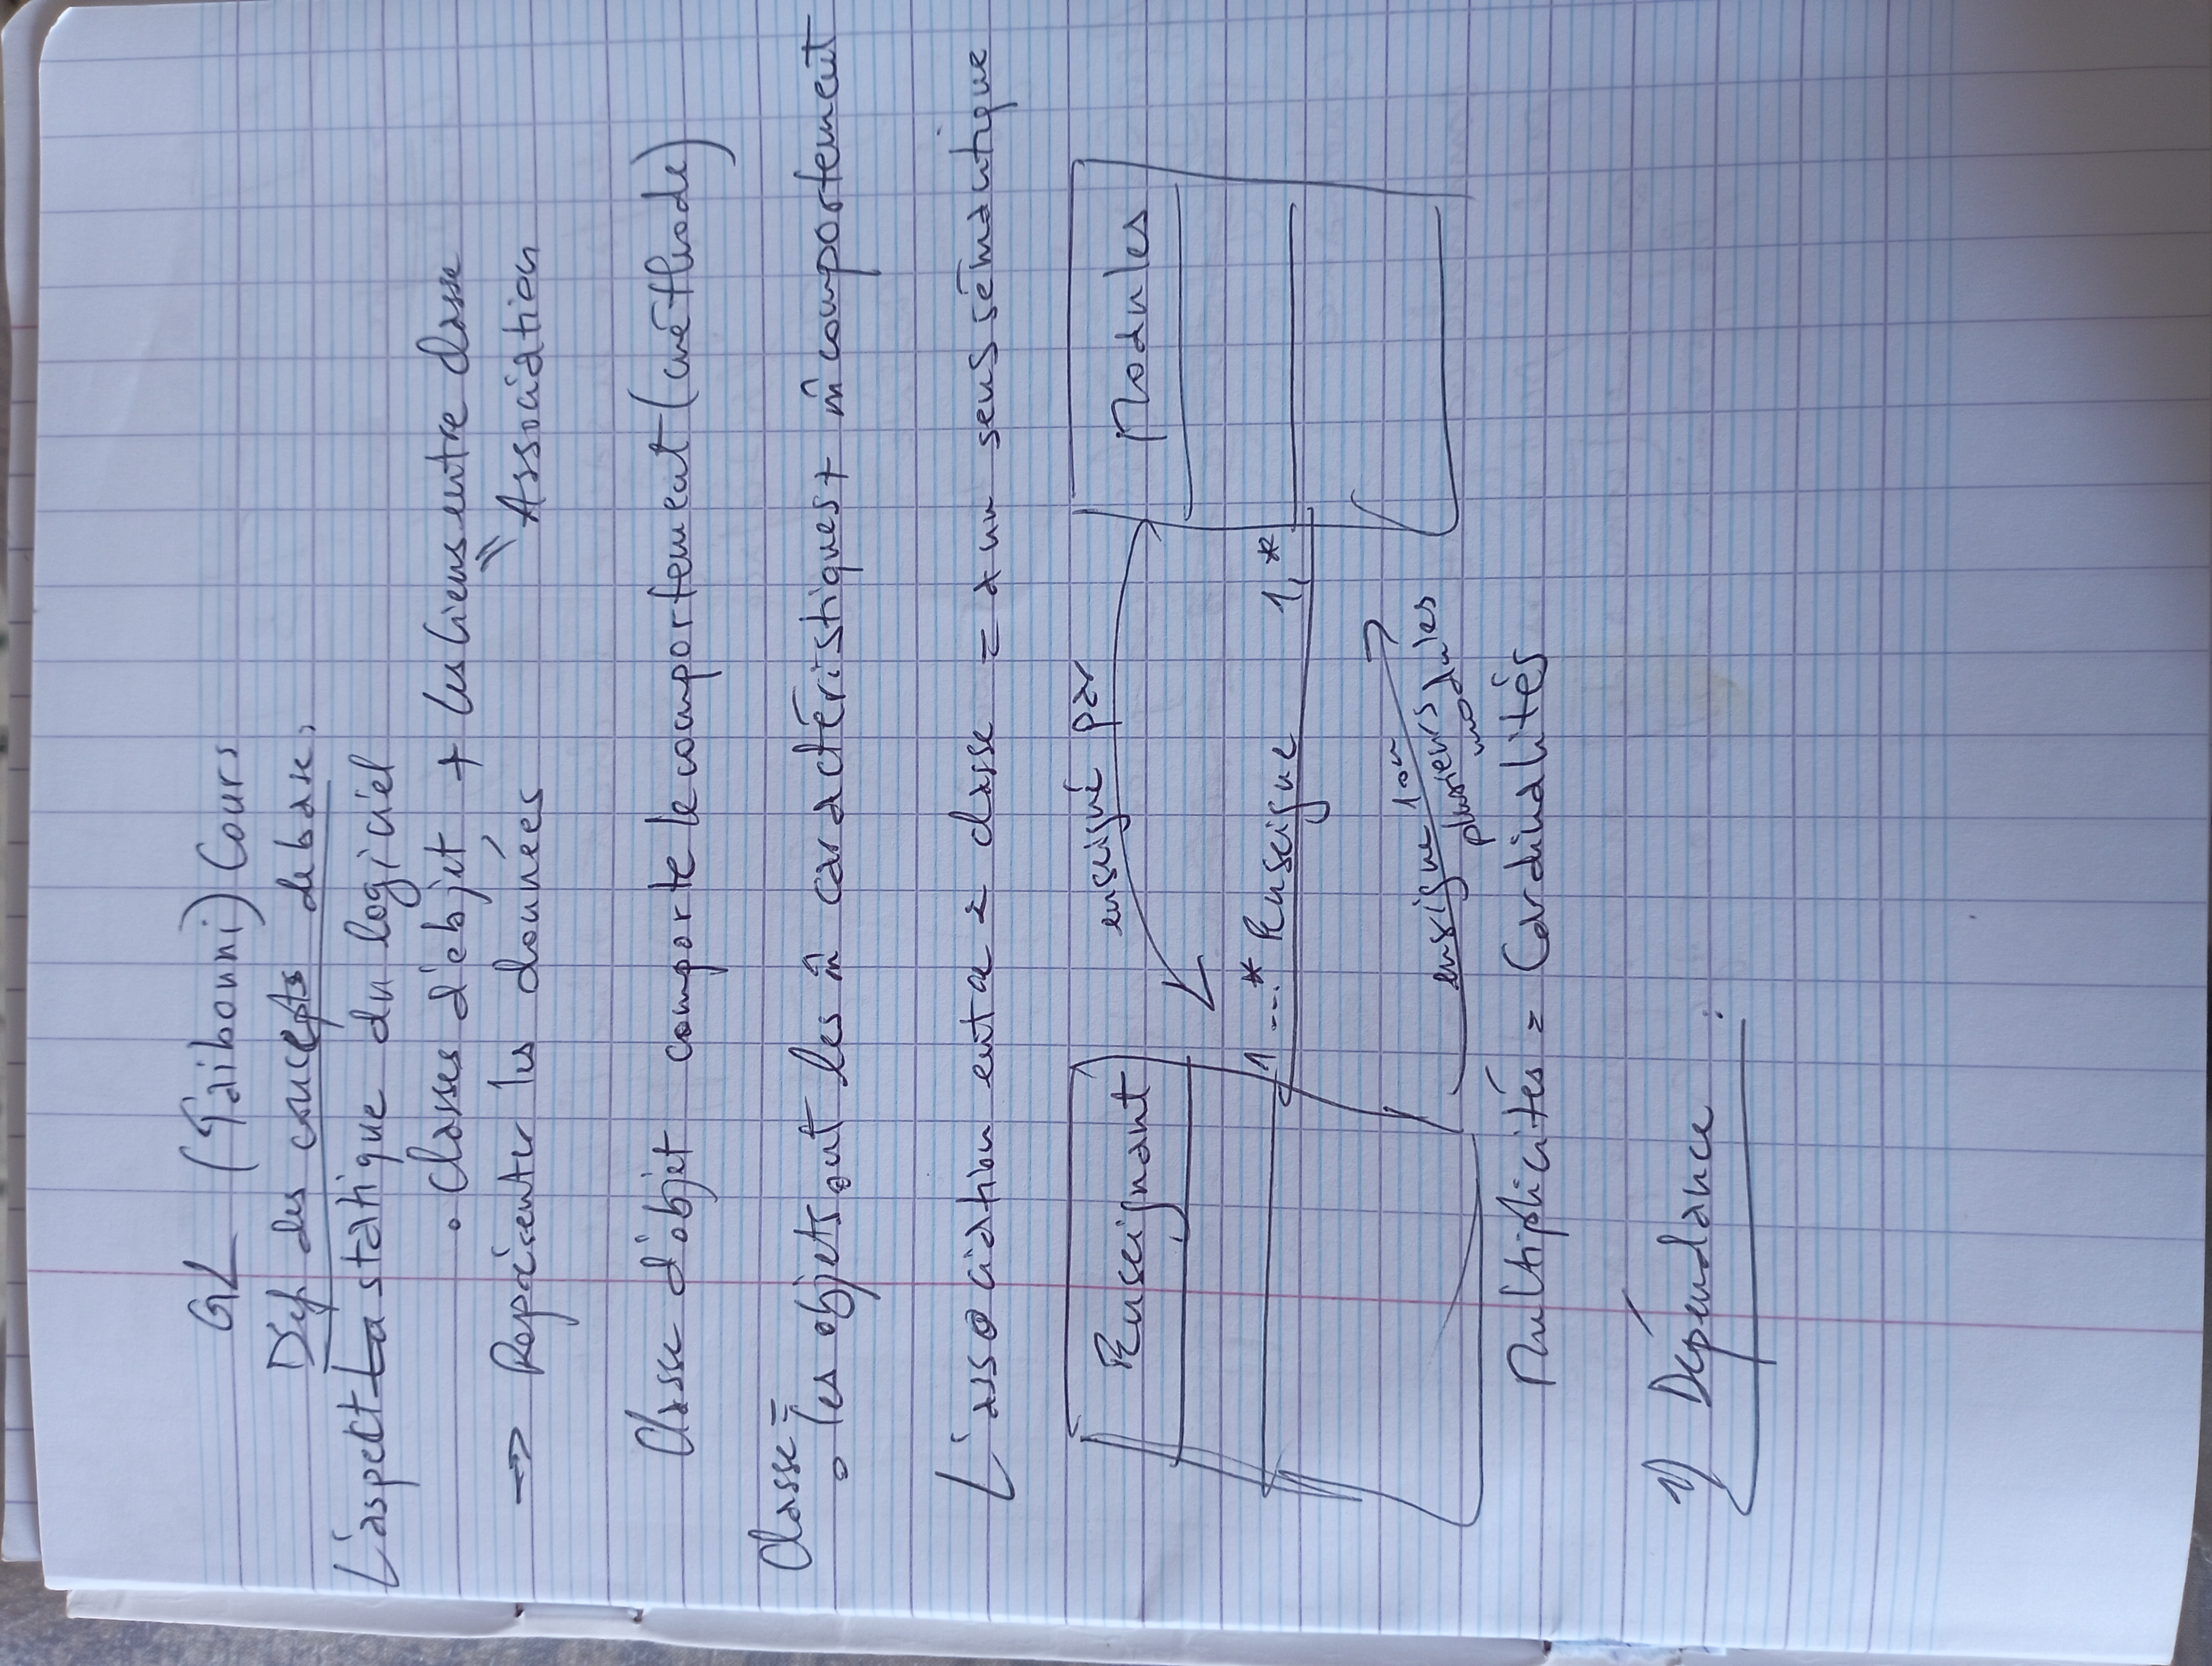 GL (Taibouni) Cours
Def des concepts de base,
L'aspect La statique du logiciel
• Classes d'objet + les liens entre classe
= Association
→ Représenter les données
Classe d'objet comporte le comportement (méthode)
Classe =
• les objets ont les m̂ caractéristiques + m̂ comportement
L'association entre 2 classe = a un sens sémantique
enseigné par
Enseignant
Modules
1...* Enseigne 1,*
enseigne 1 ou
plusieurs modules
Multiplicités = Cardinalités
1) Dépendance :